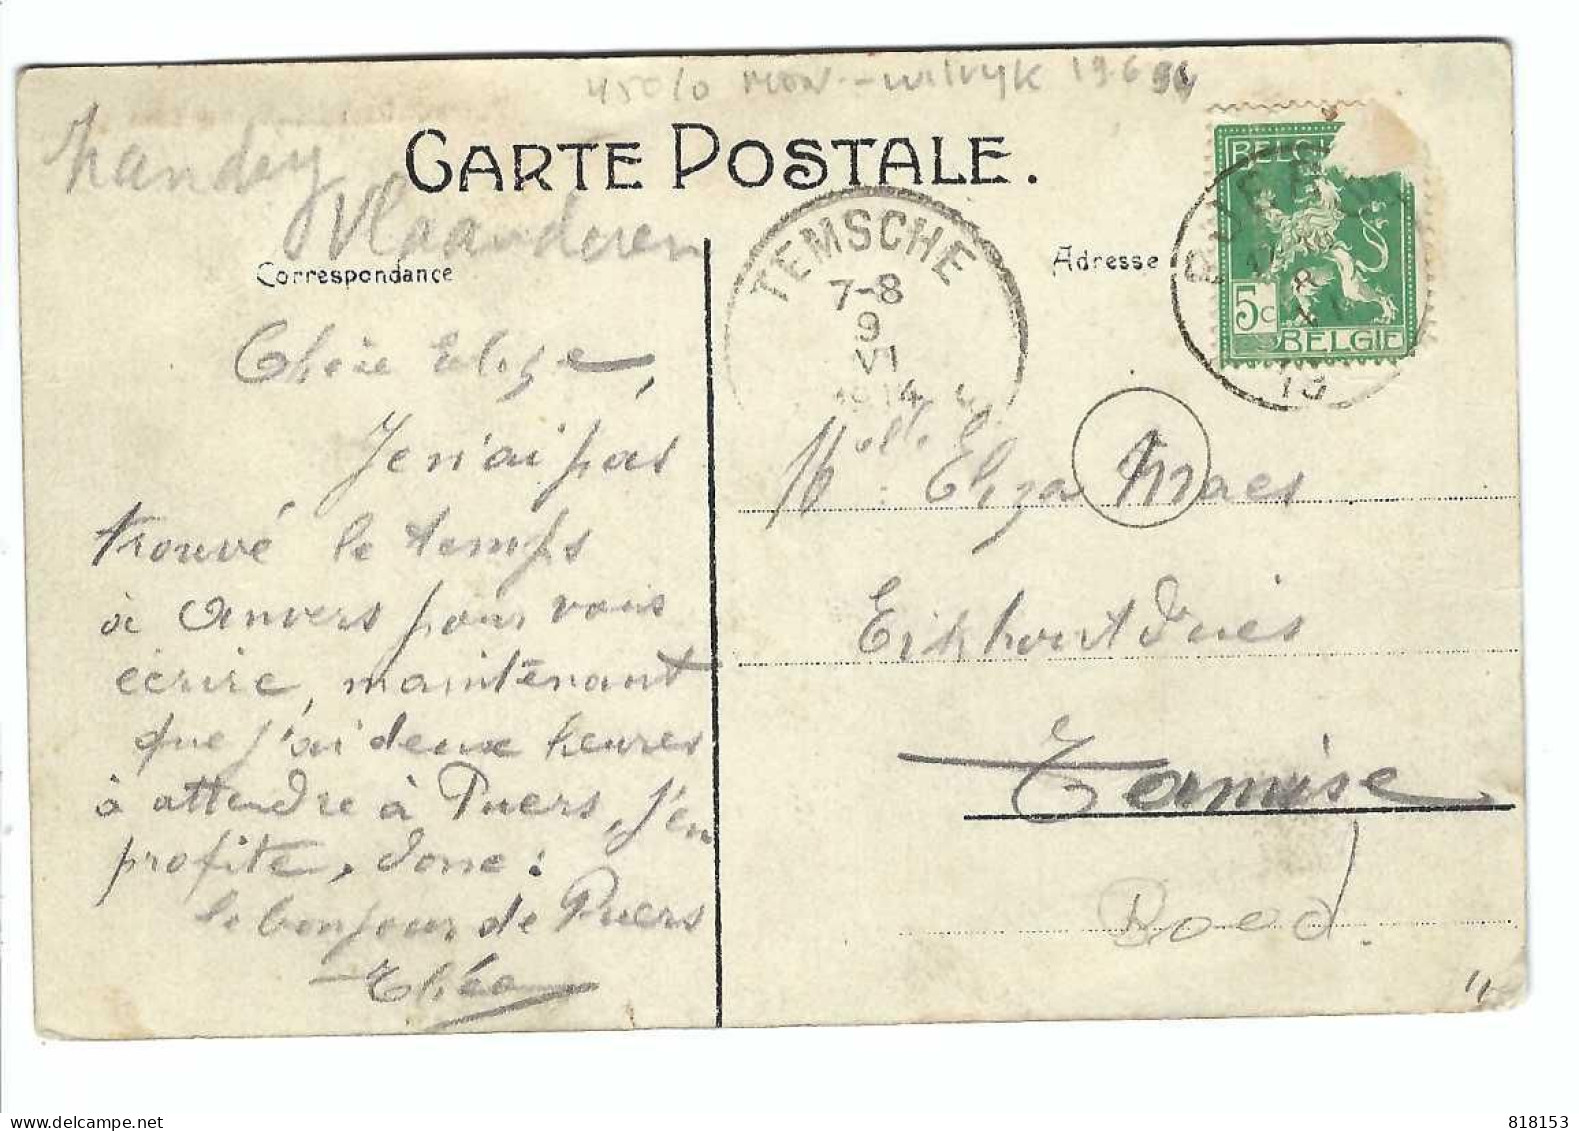 450/0 - wilryk 19.6
handig
Vlaanderen
CARTE POSTALE.
Correspondance
Adresse
TEMSCHE
7-8
9
VI
1914
BELG
5c
BELGIE
8
13
Chère Elize,
Je n'ai pas
trouvé le temps
à Anvers pour vous
écrire, maintenant
que j'ai deux heures
à attendre à Puers, j'en
profite, donc:
le bonjour de Puers
Mlle Eliza Maes
Eikhoutdries
Tamise